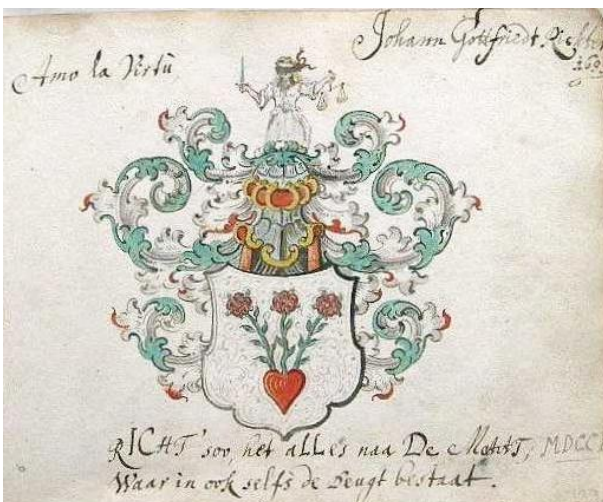 Amo la Virtù
Johann Gottfriedt Richter
RICHT' soo het alles naa De MaetT, MDCC
Waar in ook selfs de Deugt bestaat.